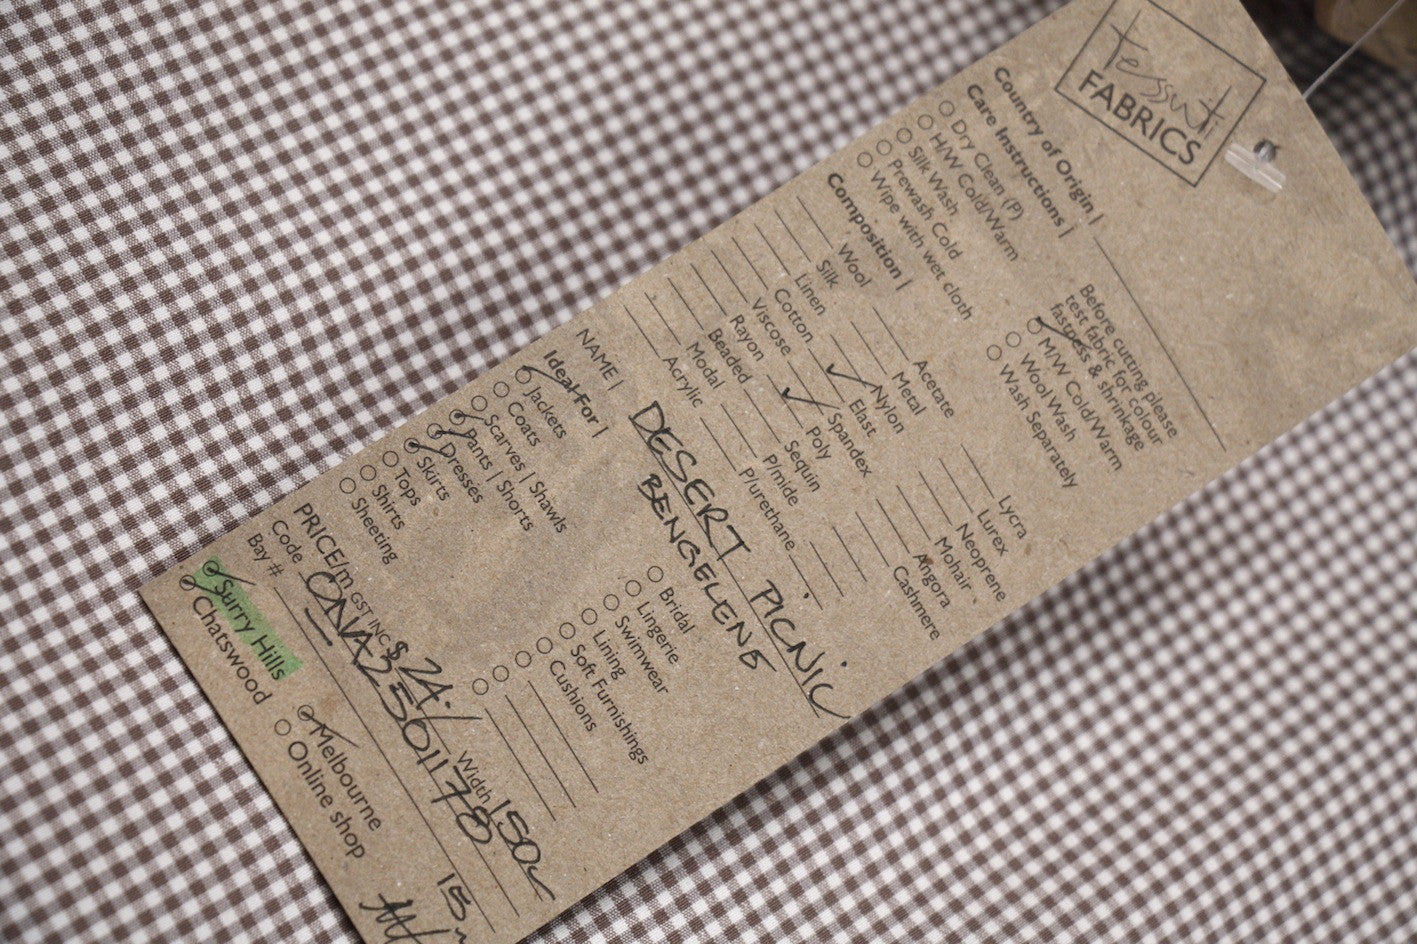 tessuti
FABRICS
Country of Origin |
Care Instructions |
Before cutting please
test fabric for colour
fastness & shrinkage
Dry Clean (P)
H/W Cold/Warm
Silk Wash
Prewash Cold
Wipe with wet cloth
M/W Cold/Warm
Wool Wash
Wash Separately
Composition |
Wool
Silk
Linen
Cotton
Viscose
Rayon
Beaded
Modal
Acrylic
Acetate
Metal
Nylon
Elast
Spandex
Poly
Sequin
P/mide
P/urethane
Lycra
Lurex
Neoprene
Mohair
Angora
Cashmere
NAME | DESERT PICNIC
BENGELENE
Ideal For |
Jackets
Coats
Scarves | Shawls
Pants | Shorts
Dresses
Skirts
Tops
Shirts
Sheeting
Bridal
Lingerie
Swimwear
Lining
Soft Furnishings
Cushions
PRICE/m GST INC $ 24.- Width 150c
Code ONA2501178
Bay # 15m
Surry Hills
Chatswood
Melbourne
Online shop